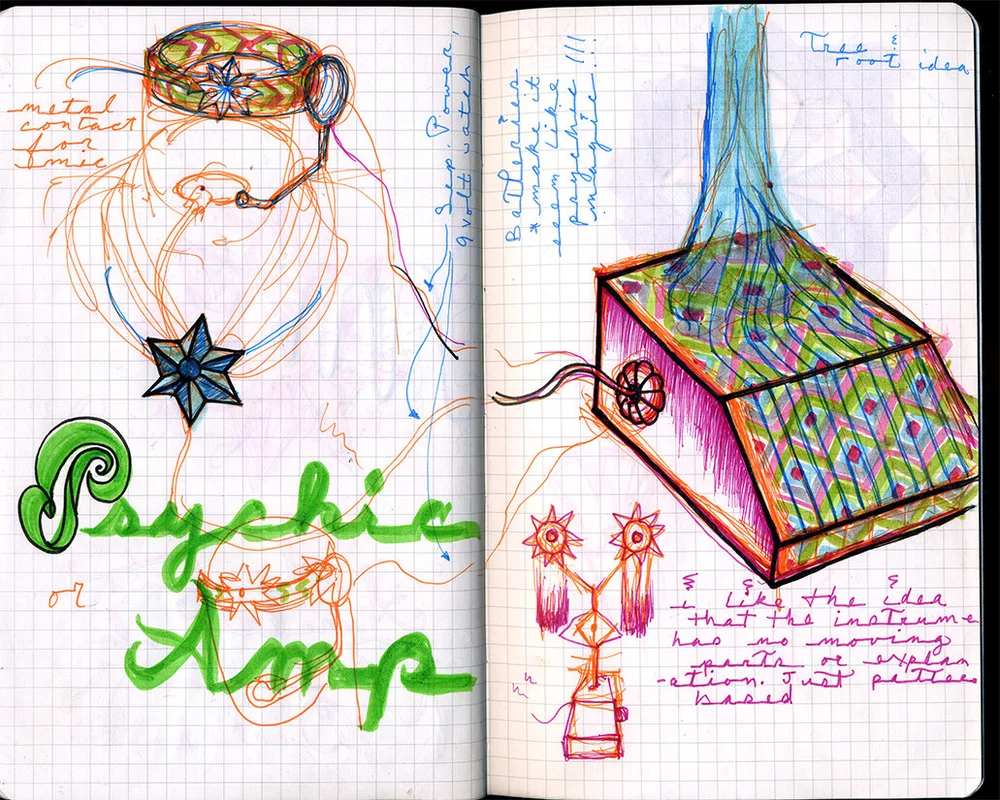 metal
contact
for
mic
Sep. Power,
9 volt watch
Psychic
or
Amp
Batteries
* make it
seem like
psychic
in magic!!!
Tree &
root idea
i like the idea
that the instrume
has no moving
parts or explan
-ation. Just pattern
based